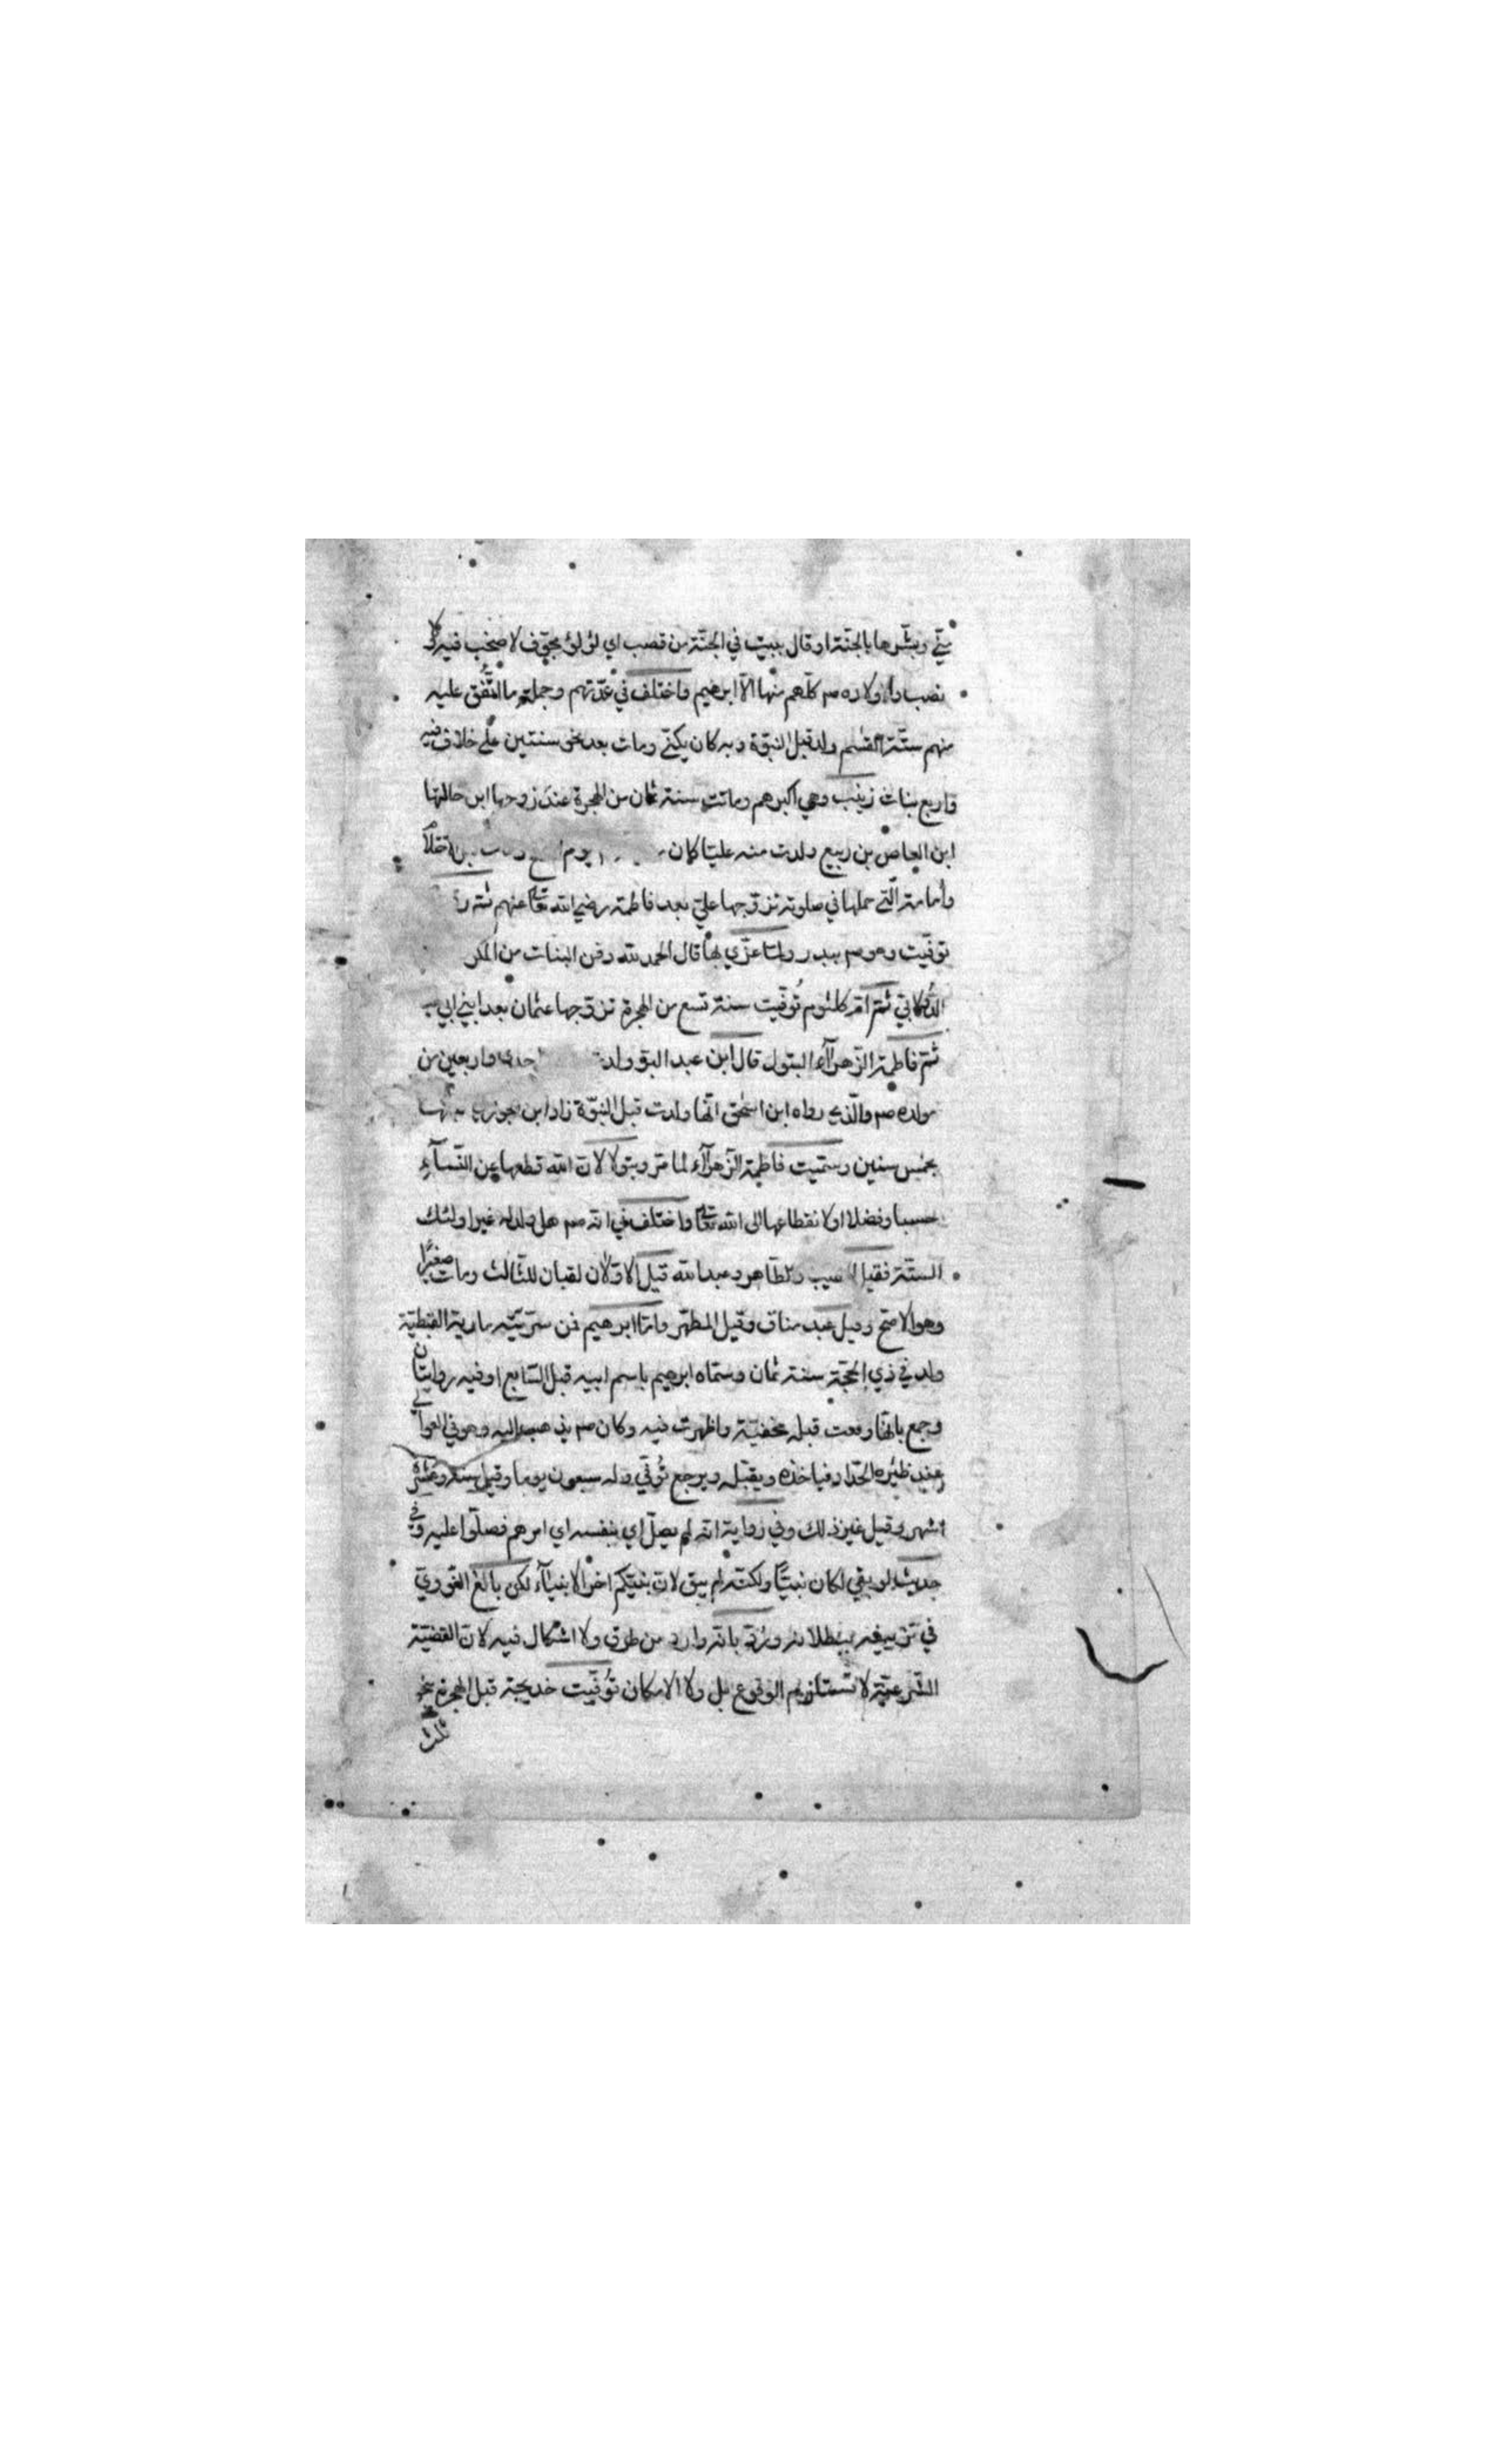 منّي وبشّرها بالجنّة او قال ببيت في الجنّة من قصب اي لؤلؤ مجوّف لا صخب فيه ولا
نصب واولاده صم كلّهم منها الّا ابرهيم واختلف في عدّتهم وجملة ما اتّفق عليه
منهم ستّة القسم ولد قبل النبوّة وبه كان يكنّى ومات بعد نحو سنتين على خلاف فيه
واربع بنات زينب وهي اكبرهم وماتت سنة ثمان من الهجرة عند زوجها ابن خالتها
ابن العاص بن ربيع ولدت منه عليّا كان يوم
وأمامة الّتي حملها في صلوته تزوّجها عليّ بعد فاطمة رضي الله تعا عنهم ثمّ
توفّيت وهو صم ببدر ولمّا عزّي بها قال الحمد لله دفن البنات من المكر
ثمّ امّ كلثوم تُوفّيت سنة تسع من الهجرة تزوّجها عثمان بعد ابني ابي
ثمّ فاطمة الزّهرآء البتول قال ابن عبد البرّ ولدت احدى واربعين من
مولده صم والّذي رواه ابن اسحق انّها ولدت قبل النبوّة زاد ابن الجوزي
بخمس سنين وسمّيت فاطمة الزّهرآء لما مرّ وبتولا لانّ الله قطعها عن النّسآء
حسبا وفضلا او لانقطاعها الى الله تعا واختلف في انّه صم هل ولد له غير اولئك
الستّة فقيل الطيب والطّاهر وعبد الله قيل الاوّلان لقبان للثّالث ومات صغيرًا
وهو الاصحّ وقيل عبد مناف وقيل المطهّر وامّا ابرهيم فمن سرّيّته مارية القبطيّة
ولد في ذي الحجّة سنة ثمان وسمّاه ابرهيم باسم ابيه قبل السّابع او فيه روايتان
وجمع بانّها وقعت قبله مخفيّة واظهرت فيه وكان صم يذهب اليه وهو في العوالي
عند ظئره الحدّاد فياخذه ويقبّله ويرجع تُوفّي وله سبعون يوما وقيل سنة وعشرة
اشهر وقيل غير ذلك وفي رواية انّه لم يصلّ اي بنفسه اي امرهم فصلّوا عليه وفي
حديث لو بقي لكان نبيّا ولكنّه لم يبق لانّ نبيّكم اخر الانبيآء لكن بالغ النّوويّ
في تزييفه ببطلانه ورُدّ بانّه وارد من طرق ولا اشكال فيه لانّ القضيّة
الشّرطيّة لا تستلزم الوقوع بل ولا الامكان تُوفّيت خديجة قبل الهجرة بنحو
ثلث